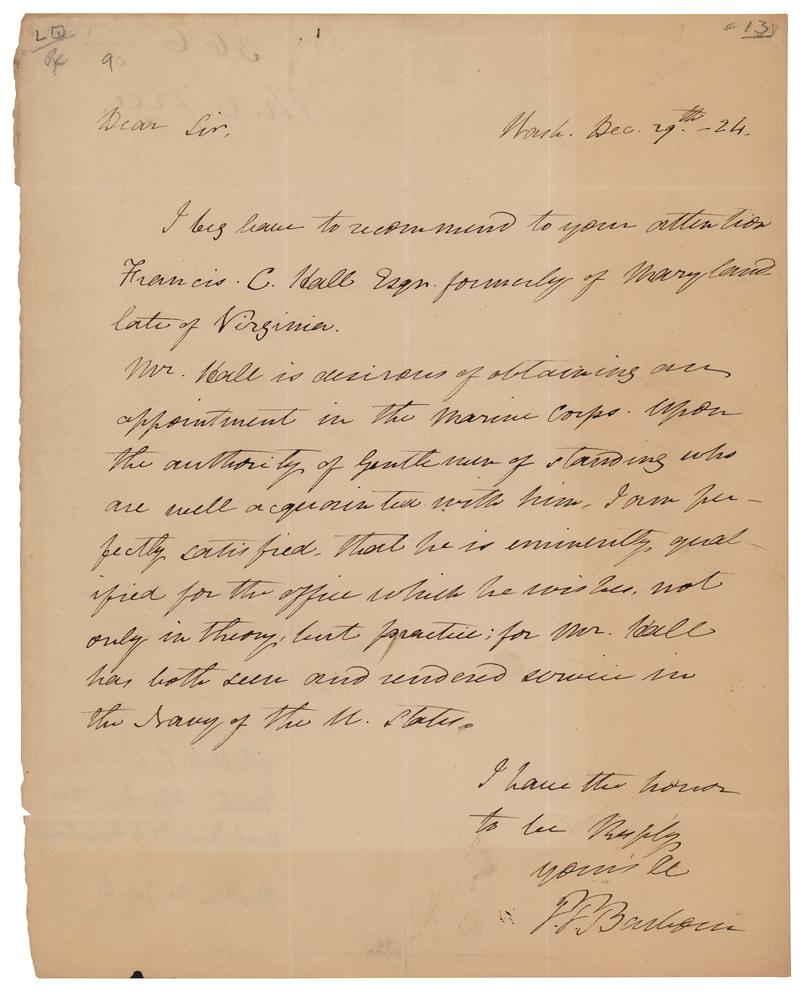 90
13
Dear Sir,
Wash. Dec. 29th. - 24.
I beg leave to recommend to your attention
Francis. C. Hall Esqr. formerly of Maryland
late of Virginia.
Mr. Hall is desirous of obtaining an
appointment in the Marine Corps. Upon
the authority of Gentlemen of standing who
are well acquainted with him, I am per-
fectly satisfied, that he is eminently qual-
ified for the office which he wishes, not
only in theory, but practice; for Mr. Hall
has both seen and rendered service in
the Navy of the U. States.
I have the honor
to be Resply
yours &c
P. P. Barbour